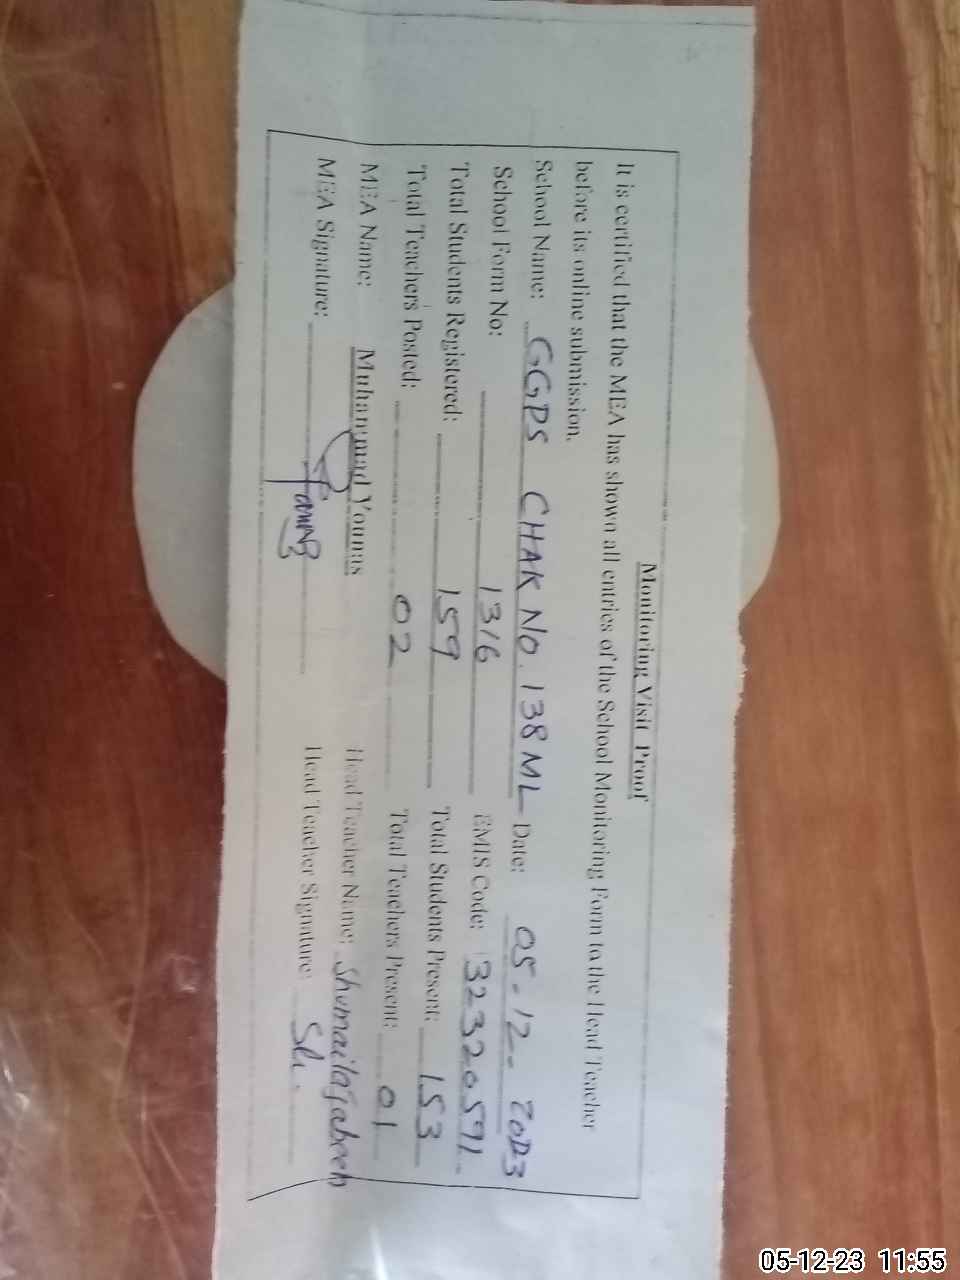 Monitoring Visit Proof
It is certified that the MEA has shown all entries of the School Monitoring Form to the Head Teacher
before its online submission.
School Name: GGPS CHAK NO. 138 ML Date: 05-12-2023
School Form No: 1316 EMIS Code: 32320591
Total Students Registered: 159 Total Students Present: 153
Total Teachers Posted: 02 Total Teachers Present: 01
MEA Name: Muhammad Younas Head Teacher Name: Shumaila Jabeen
MEA Signature: Head Teacher Signature:
05-12-23 11:55